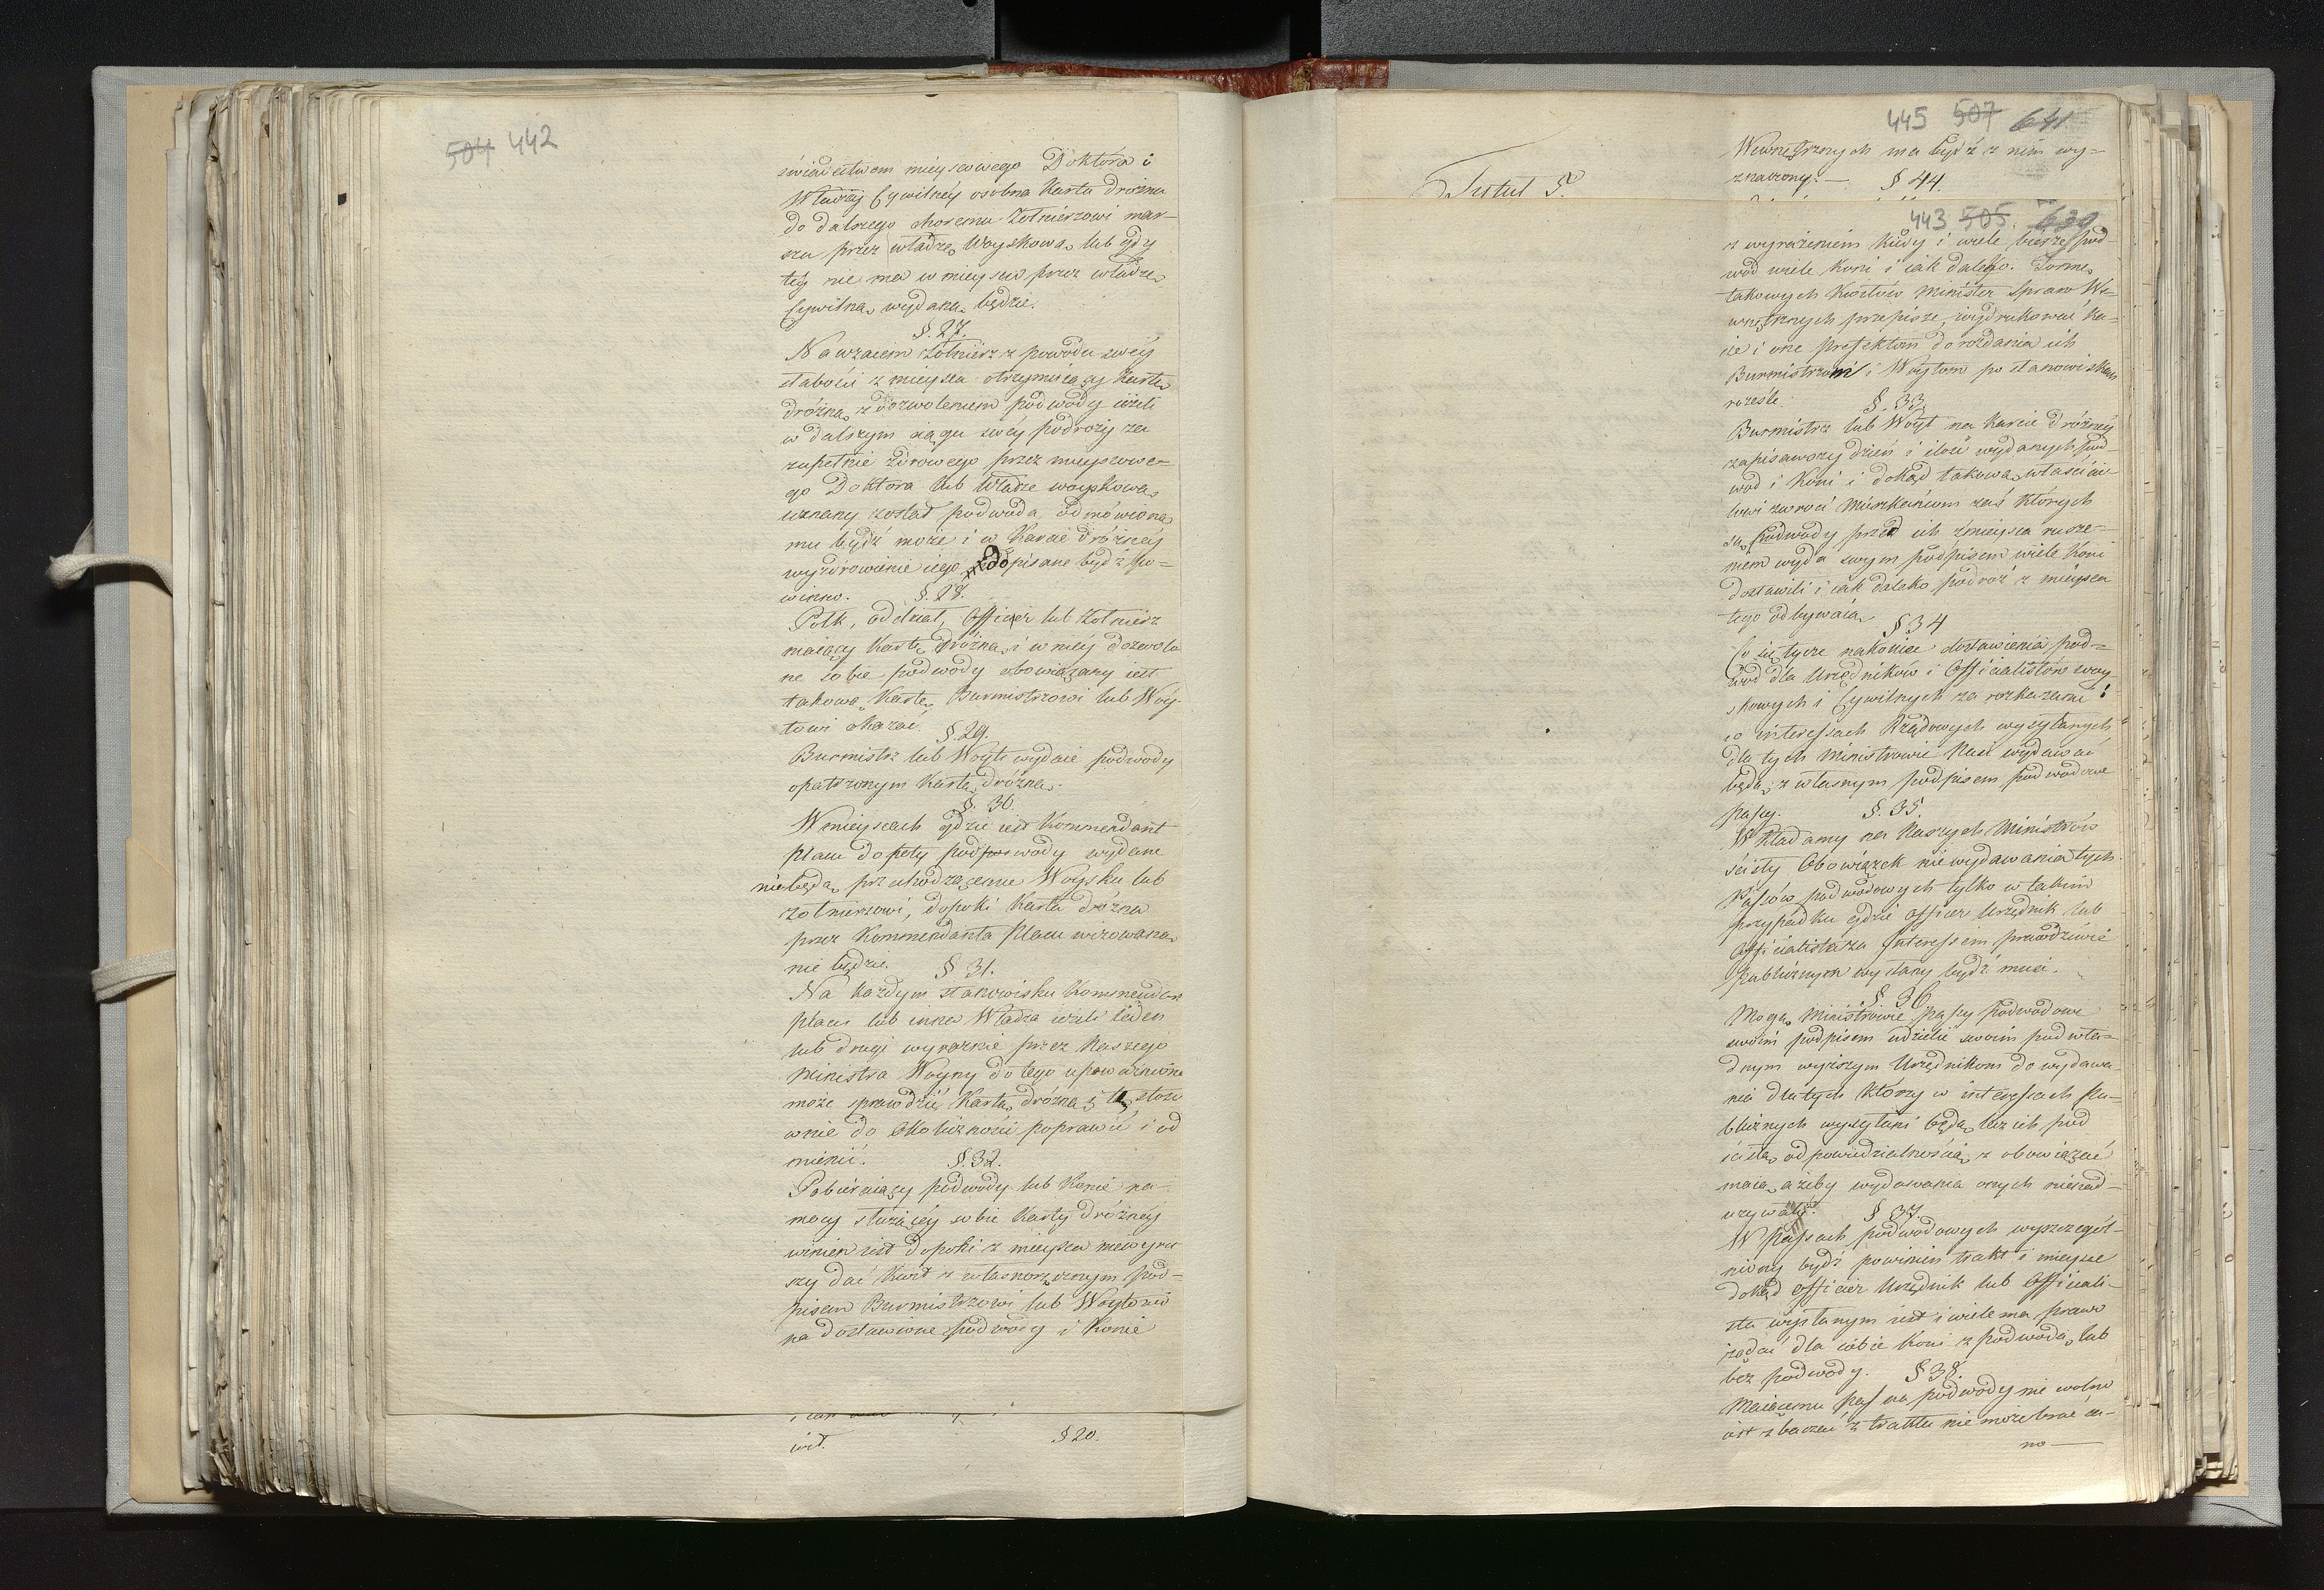 504 442
świadectwem mieyscowego Doktora i
Władzy Cywilney osobna Karta drożna
do dalszego choremu Żołnierzowi mar-
szu przez władzę Woyskową lub gdy
tey nie ma w mieyscu przez władzę
Cywilną wydana będzie.
§. 27.
Nawzaiem żołnierz z powodu swéy
słabości z mieysca otrzymuiący Kartę
dróżną z dozwoleniem podwody ieżeli
w dalszym ciągu swéy podroży za
zupełnie zdrowego przez mieyscowe-
go Doktora lub Władzę woyskową
uznany został podwoda odmówioną
mu bydź może i w Karcie dróżnéy
wyzdrowienie iego dopisane bydź po-
winno. §. 28.
Pólk, oddział, Officier lub Żołnierz
maiący Kartę dróżną i w niéy dozwolo
ne sobie podwody obowiązany iest
takową Kartę Burmistrzowi lub Wóy-
towi okazać. §. 29.
Burmistrz lub Wóyt wydaie podwody
opatrzonym Kartą dróżną.
§. 30.
W mieyscach gdzie iest Kommendant
placu dopóty podwody wydane
nie będą przechodzącemu Woysku lub
żołnierzowi, dopoki Karta dróżna
przez Kommendanta Placu wizowana
nie będzie. § 31.
Na każdym stanowisku Kommendant
placu lub inna Władza ieżeli ieden
lub drugi wyraźnie przez Naszego
Ministra Woyny do tego upoważnione
może sprawdzić Kartę dróżną i tę stoso
wnie do Okoliczności poprawić i od
mienić. §. 32.
Pobieraiący podwody lub Konie na
mocy służącéy sobie Karty dróżnéy
winien iest dopoki z mieysca nie wyru
szy dać kwit z własnoręcznym pod-
pisem Burmistrzowi lub Woytowi
na dostawione podwody i Konie
iest. § 20.
445 507 641
Tytuł 5.
Wewnętrznych ma bydź z nim wy-
znaczony. — § 44.
443 505. 639
z wyrażeniem kiedy i wiele bierze pod-
wód wiele koni i iak daleko. Formę
takowych Kwitów Minister Spraw We-
wnętrznych przepisze, wydrukować ka-
że i one prefektom do rozdania ich
Burmistrzom i Woytom po stanowiskach
roześle. §. 33.
Burmistrz lub Woyt na Karcie dróżnéy
zapisawszy dzień i ilość wydanych pod-
wod i Koni i dokąd takową właścicie-
lowi zwroci Mieszkańcom zaś których
są podwody przed ich z mieysca rusze-
niem wyda swym podpisem wiele Koni
dostawili i iak daleko podroż z mieysca
tego odbywaią. § 34
Co się tycze nakoniec dostawienia pod-
wod dla Urzędników i Officialistów woy-
skowych i Cywilnych za rozkazami i
w interessach Rządowych wysyłanych
dla tych Ministrowie Nasi wydawać
będą z własnym podpisem podwodowe
passy. §. 35.
Wkładamy na Naszych Ministrów
ścisły Obowiązek nie wydawania tych
Passów podwodowych tylko w takim
przypadku gdzie Officer Urzędnik lub
Officialista za Interessem prawdziwie
publicznym wysłany bydź musi.
§. 36
Mogą Ministrowie passy podwodowe
swoim podpisem udzielić swoim podwła-
dnym wyższym Urzędnikom do wydawa-
nia dla tych którzy w interessach pu-
blicznych wysyłani będą lecz ich pod
ścisłą odpowiedzialnością zobowiązać
maią ażeby wydawania onych nienad-
używali. § 37
W Passach podwodowych wyszczegól-
niony bydź powinien trakt i mieysce
dokąd Officier Urzędnik lub Officiali-
sta wysłanym iest i wiele ma prawo
żądać dla siebie koni z podwodą lub
bez podwody. § 38.
Maiącemu pas na podwody nie wolno
iest zbaczać z traktu nie może brać da-
no —